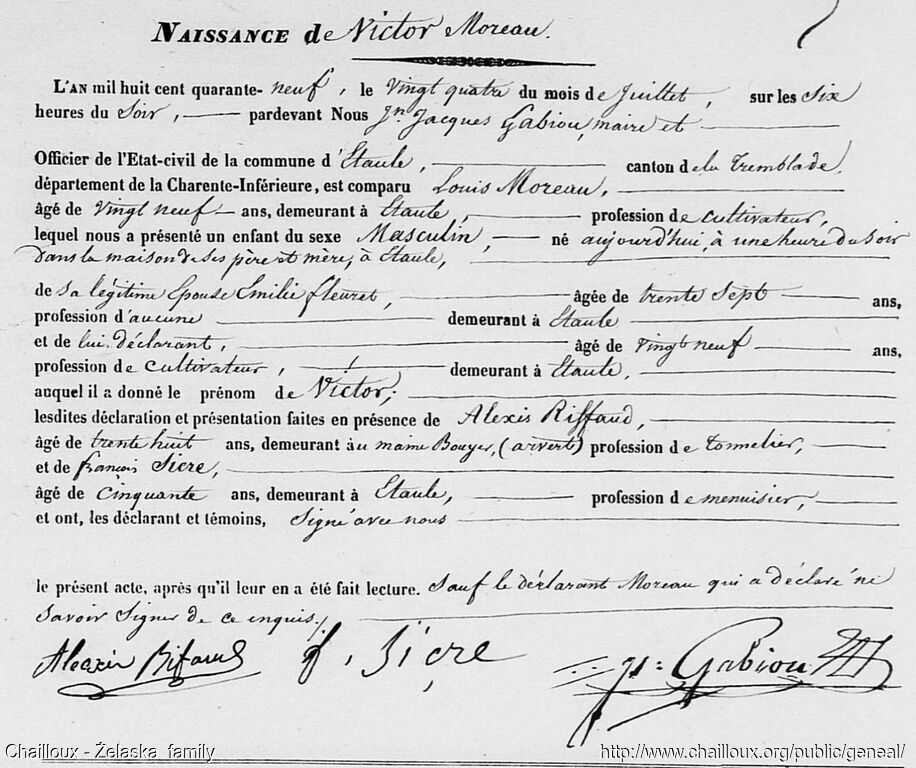 NAISSANCE de Victor Moreau.
L'AN mil huit cent quarante-neuf, le vingt quatre du mois de Juillet, sur les Six
heures du Soir, pardevant Nous Jn. Jacques Gabiou, maire et
Officier de l'Etat-civil de la commune d'Etaule, canton de la Tremblade,
département de la Charente-Inférieure, est comparu Louis Moreau,
âgé de vingt neuf ans, demeurant à Etaule, profession de cultivateur,
lequel nous a présenté un enfant du sexe Masculin, né aujourd'hui, à une heure du Soir
dans la maison de ses père et mère, à Etaule,
de sa légitime Epouse Emilie fleuret, âgée de trente Sept ans,
profession d'aucune demeurant à Etaule
et de lui déclarant, âgé de vingt neuf ans,
profession de cultivateur, demeurant à Etaule,
auquel il a donné le prénom de Victor;
lesdites déclaration et présentation faites en présence de Alexis Riffaud,
âgé de trente huit ans, demeurant à au maine Bouyer, (arvert) profession de tonnelier,
et de françois Sicre,
âgé de Cinquante ans, demeurant à Etaule, profession de menuisier,
et ont, les déclarant et témoins, Signé avec nous
le présent acte, après qu'il leur en a été fait lecture. Sauf le déclarant Moreau qui a déclaré ne
savoir Signer de ce enquis./.
Alexis Rifaud f, Sicre Gabiou
Chailloux - Żelaska family http://www.chailloux.org/public/geneal/